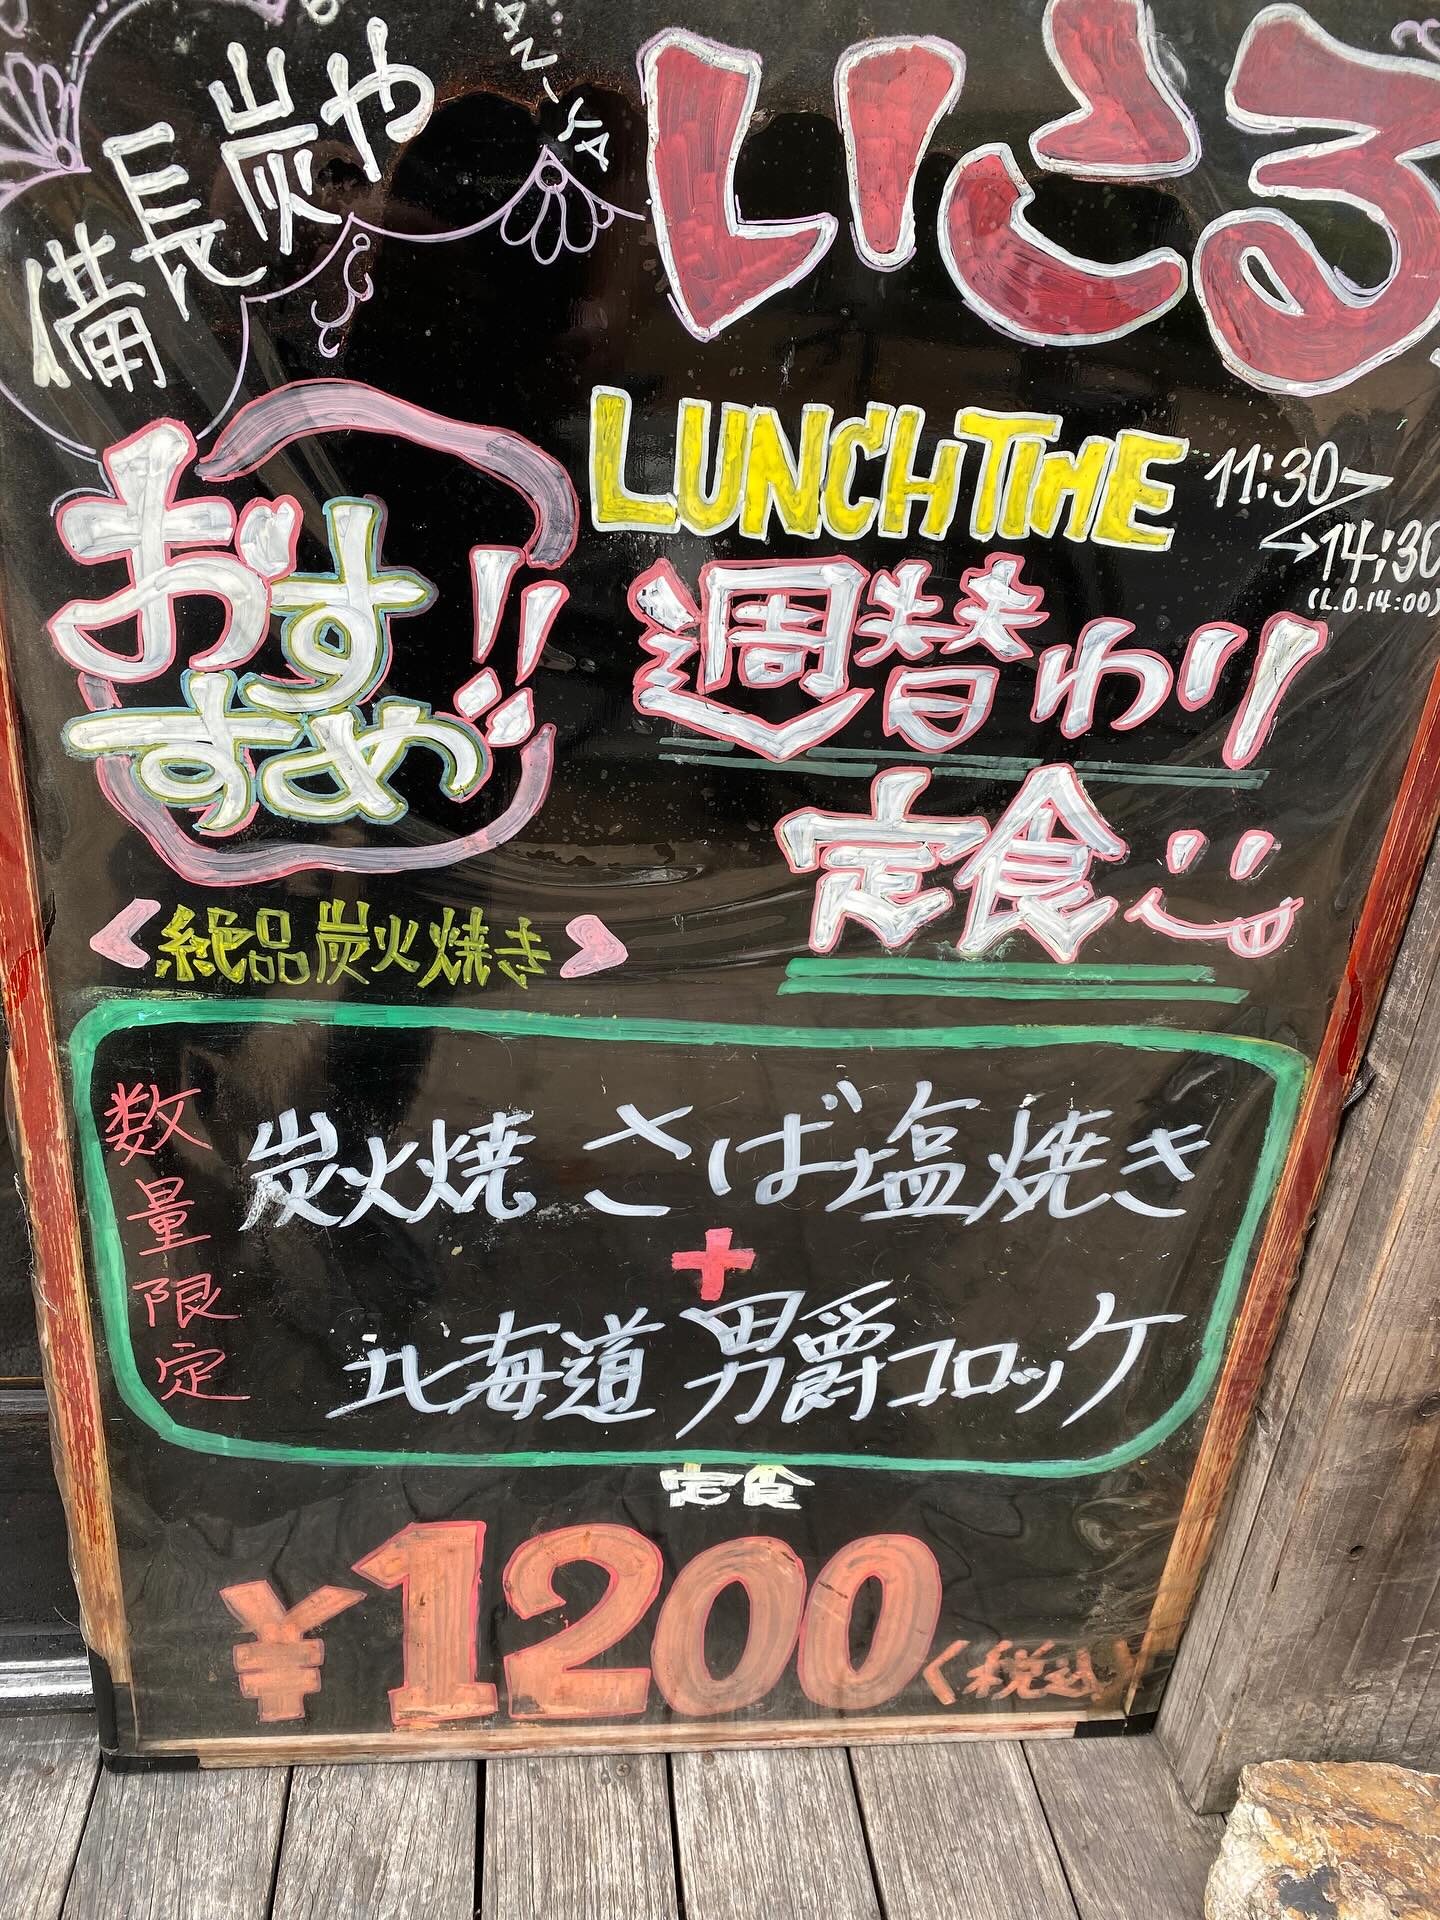 備長炭や
いこる
LUNCHTIME 11:30~
→14:30
(L.O.14:00)
おすすめ!!
週替わり
定食
絶品炭火焼き
数量限定
炭火焼 さば塩焼き
+
北海道 男爵コロッケ
定食
¥1200 (税込)